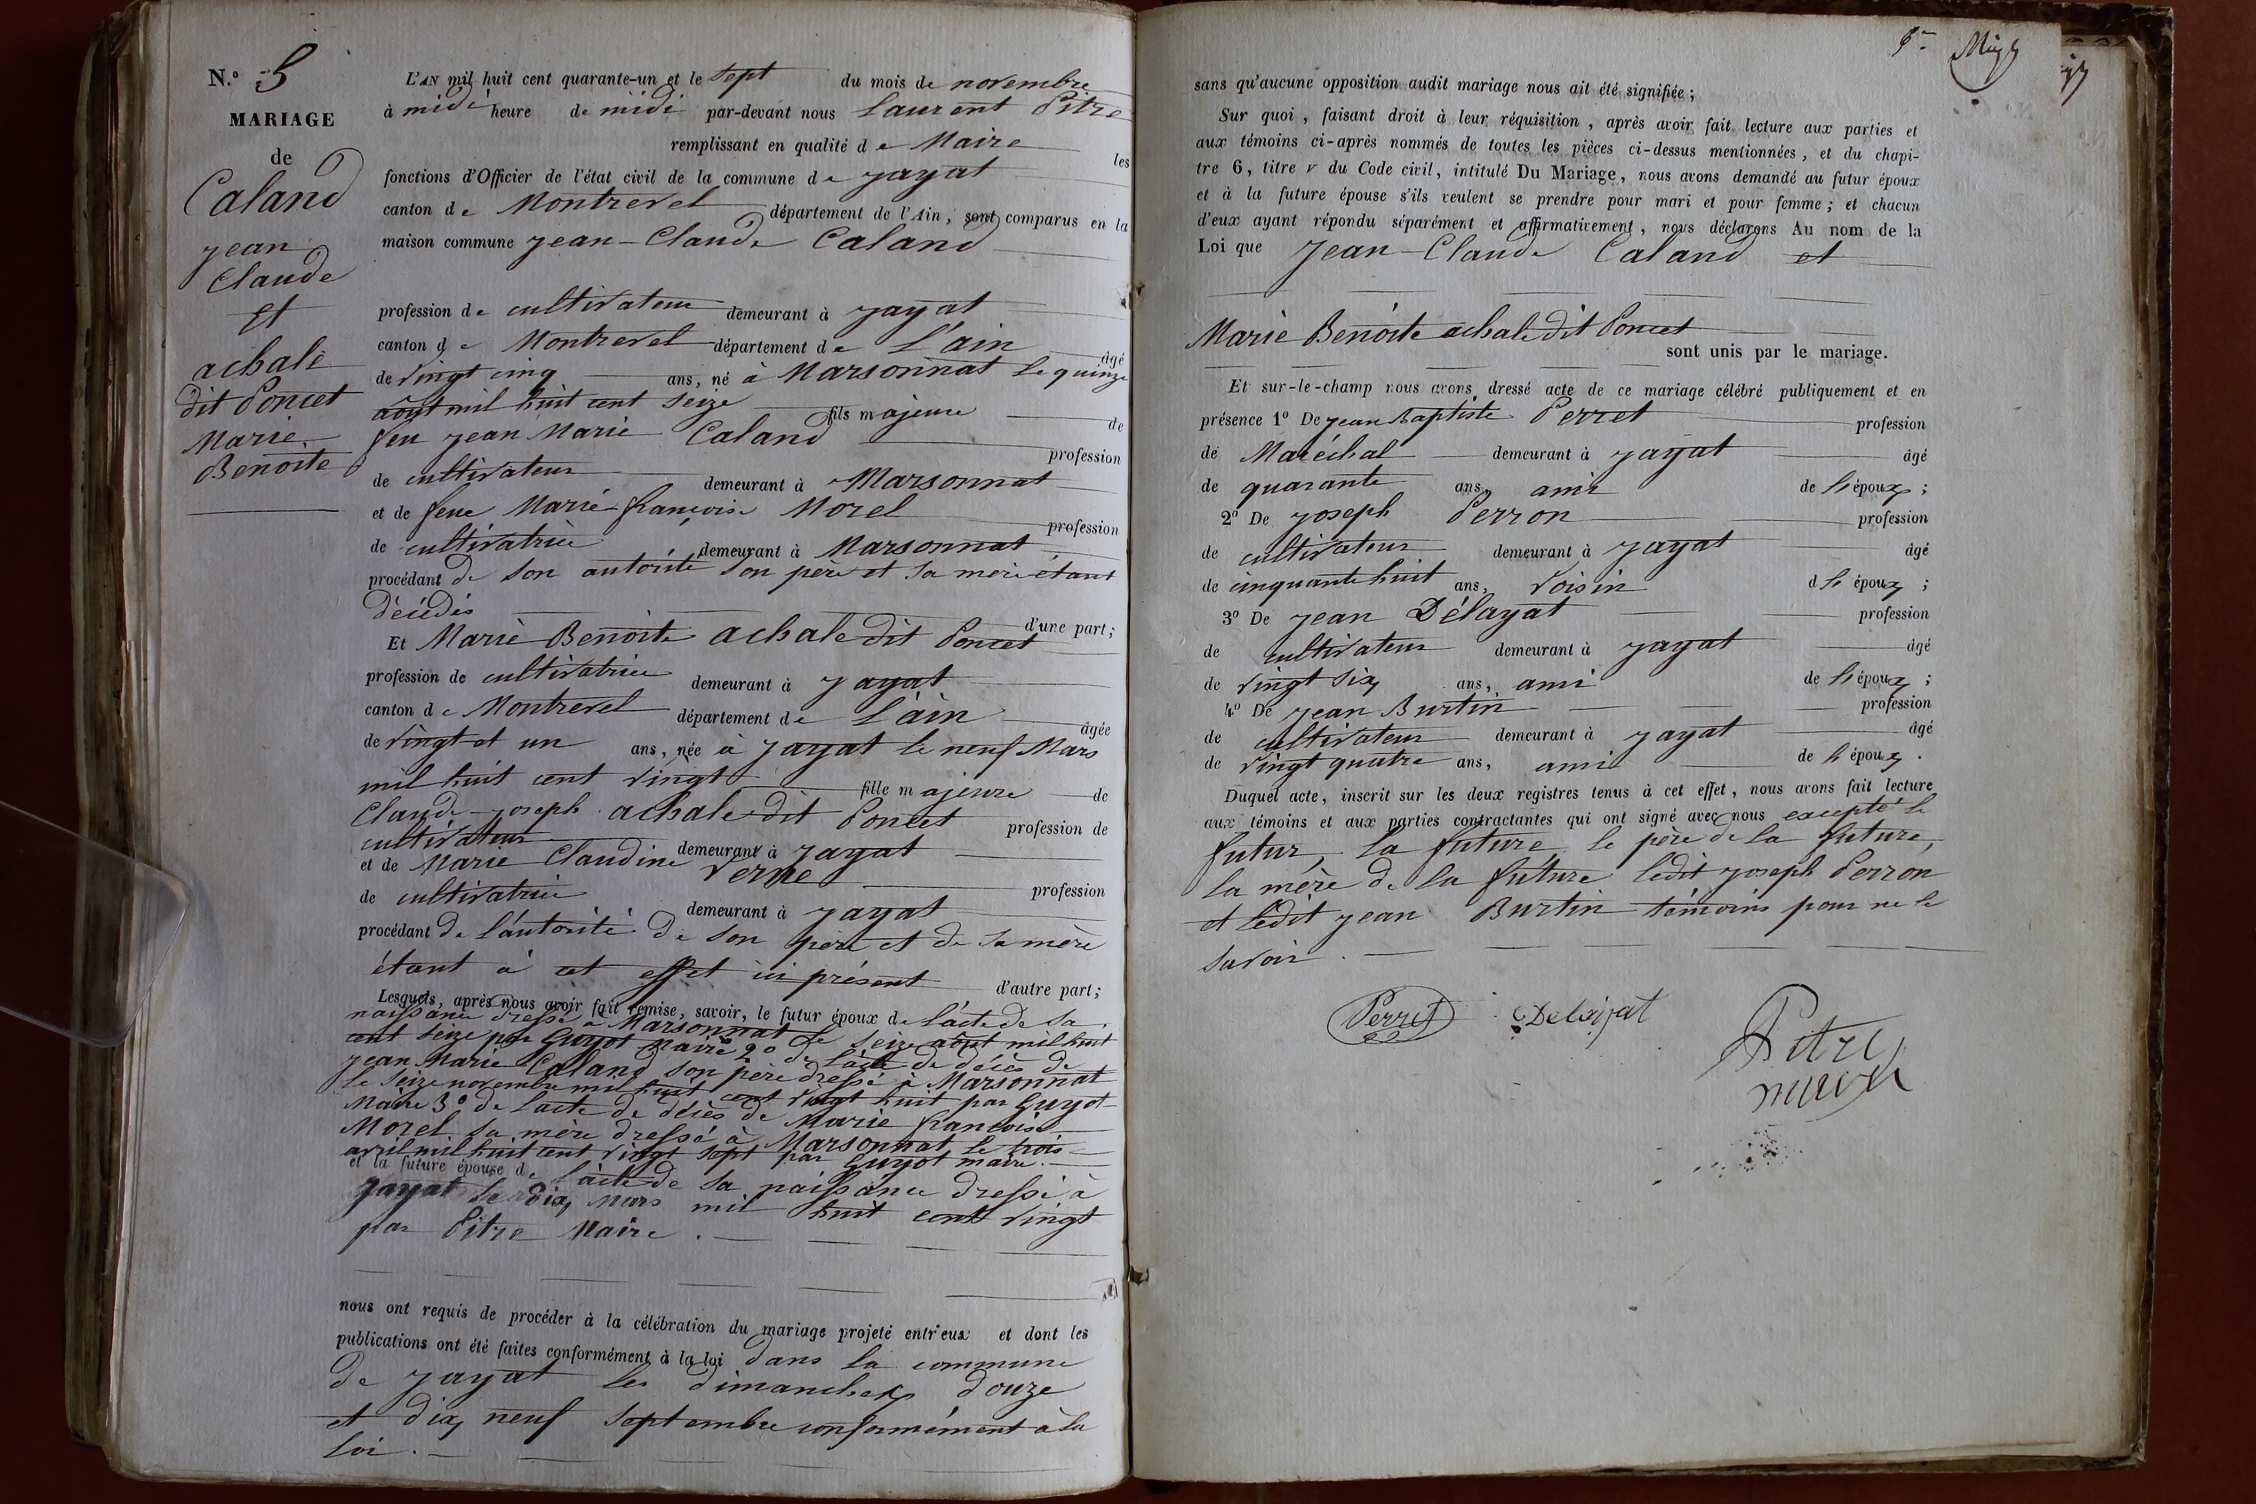 N.º 5
MARIAGE
de
Caland
jean
Claude
et
achale
dit Poncet
Marie
Benoite
L'AN mil huit cent quarante-un et le sept du mois de novembre
à midi heure de midi par-devant nous Laurent Pitre
remplissant en qualité de Maire les
fonctions d'Officier de l'état civil de la commune de jayat
canton de Montrevel département de l'Ain, sont comparus en la
maison commune jean-Claude Caland
profession de cultivateur demeurant à jayat
canton de Montrevel département de L'ain âgé
de vingt cinq ans, né à Marsonnat le quinze
août mil huit cent seize fils majeure de
feu jean Marie Caland profession
de cultivateur demeurant à Marsonnat
et de feue Marie-françoise Morel profession
de cultivatrice demeurant à Marsonnat
procédant de son autorité son père et sa mère étant
décédés d'une part;
Et Marie Benoite achale dit Poncet
profession de cultivatrice demeurant à jayat
canton de Montrevel département de L'ain âgée
de vingt et un ans, née à jayat le neuf Mars
mil huit cent vingt fille majeure de
Claude-joseph achale dit Poncet profession de
cultivateur demeurant à jayat
et de Marie Claudine Verne profession
de cultivatrice demeurant à jayat
procédant de l'autorité de son père et de sa mère
étant à cet effet ici présent d'autre part;
Lesquels, après nous avoir fait remise, savoir, le futur époux de l'acte de sa
naissance dressé à Marsonnat le seize août mil huit
cent seize par Guyot Maire 2º de l'acte de décès de
jean Marie Caland son père dressé à Marsonnat
le seize novembre mil huit cent vingt huit par Guyot
Maire 3º de l'acte de décès de Marie françoise
Morel sa mère dressé à Marsonnat le trois
avril mil huit cent vingt sept par Guyot maire.
et la future épouse de l'acte de sa naissance dressé à
jayat le dix Mars mil huit cent vingt
par Pitre Maire.
nous ont requis de procéder à la célébration du mariage projeté entr'eux et dont les
publications ont été faites conformément à la loi dans la commune
de jayat les dimanches douze
et dix neuf septembre conformément à la
loi.
sans qu'aucune opposition audit mariage nous ait été signifiée;
Sur quoi, faisant droit à leur réquisition, après avoir fait lecture aux parties et
aux témoins ci-après nommés de toutes les pièces ci-dessus mentionnées, et du chapi-
tre 6, titre v du Code civil, intitulé Du Mariage, nous avons demandé au futur époux
et à la future épouse s'ils veulent se prendre pour mari et pour femme; et chacun
d'eux ayant répondu séparément et affirmativement, nous déclarons Au nom de la
Loi que jean-Claude Caland et
Marie Benoite achale dit Poncet
sont unis par le mariage.
Et sur-le-champ nous avons dressé acte de ce mariage célébré publiquement et en
présence 1º De jean Baptiste Perret profession
de Maréchal demeurant à jayat âgé
de quarante ans, ami de l'époux;
2º De joseph Perron profession
de cultivateur demeurant à jayat âgé
de cinquante huit ans, voisin d l'époux;
3º De jean Délayat profession
de cultivateur demeurant à jayat âgé
de vingt six ans, ami de l'époux;
4º De jean Burtin profession
de cultivateur demeurant à jayat âgé
de vingt quatre ans, ami de l'époux.
Duquel acte, inscrit sur les deux registres tenus à cet effet, nous avons fait lecture
aux témoins et aux parties contractantes qui ont signé avec nous excepté le
futur, la future, le père de la future,
la mère de la future ledit joseph Perron
et ledit jean Burtin témoins pour ne le
savoir.
Perret Delayat Pitre
maire